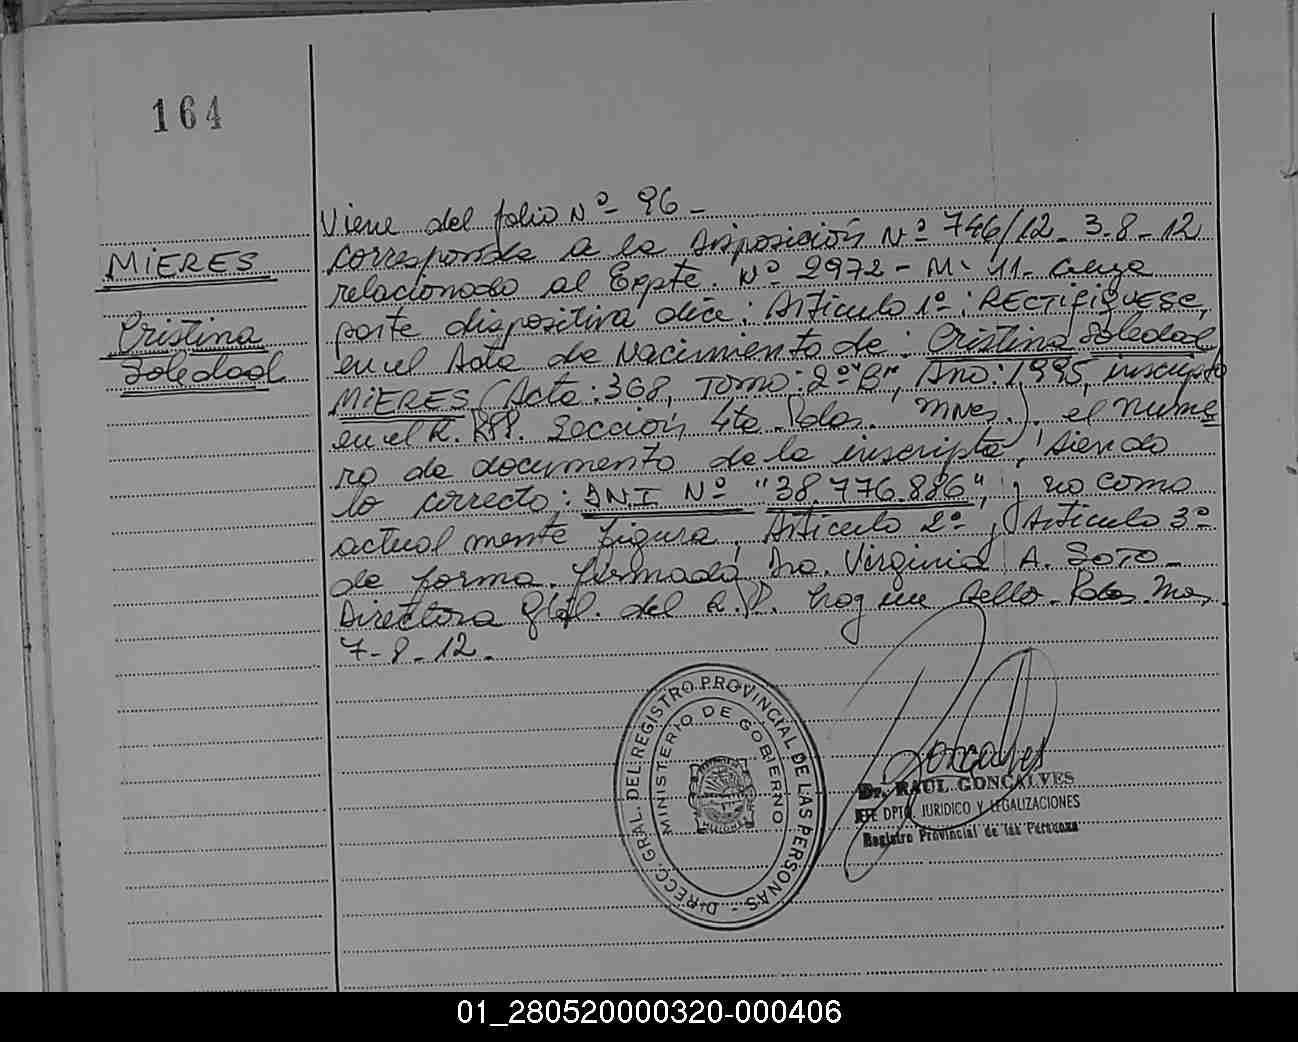 164
Viene del folio Nº 96 -
MIERES
Corresponde a la Disposición Nº 746/12 - 3-8-12
relacionado al Expte. Nº 2972 - M- 11- cuya
Cristina
Soledad
parte dispositiva dice: Artículo 1º: RECTIFIQUESE,
en el Acta de Nacimiento de: Cristina Soledad
MIERES (Acta: 368, Tomo: 2º "B", Año: 1995, inscripta
en el R.PP. Sección 4ta - Pdas. Mnes.) el Núme
ro de documento de la inscripta, siendo
lo correcto: DNI Nº "38.776.886", y no como
actualmente figura, Artículo 2º y Artículo 3º
de forma. firmada Dra. Virginia A. SOTO -
Directora Gral. del R.P. hay un Sello - Pdas. Mes.
7-8-12.
DIRECC. GRAL. DEL REGISTRO PROVINCIAL DE LAS PERSONAS -
MINISTERIO DE GOBIERNO
Goncalves
Dr. RAUL GONCALVES
JEFE DPTO. JURIDICO Y LEGALIZACIONES
Registro Provincial de las Personas
01_280520000320-000406